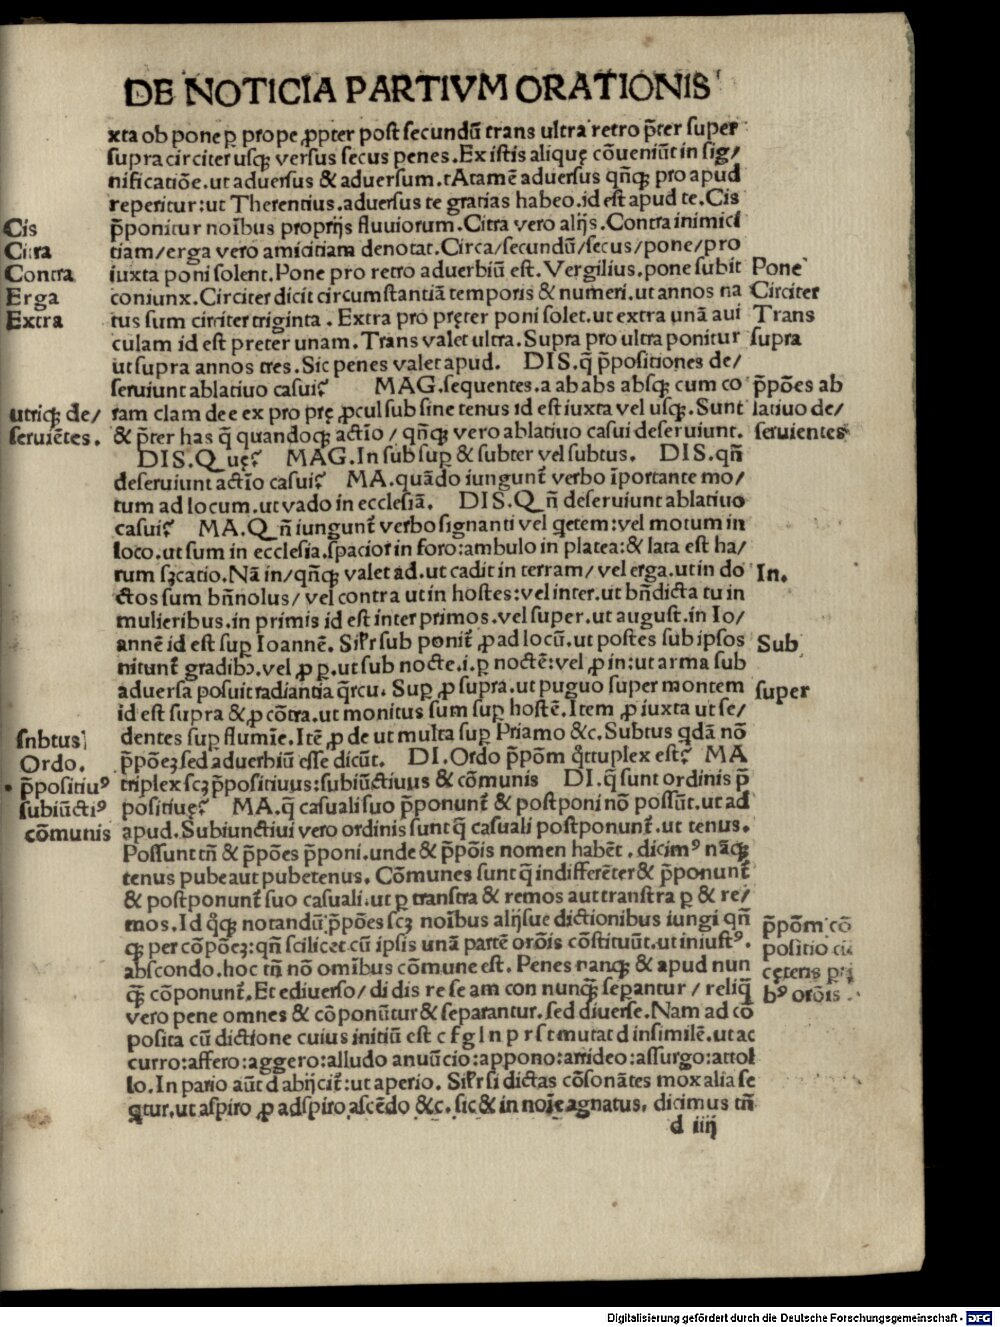 DE NOTICIA PARTIVM ORATIONIS
xta ob pone ꝑ prope ꝓpter post secundū trans ultra retro p̄ter super
supra circiter usqꝫ versus secus penes. Ex istis aliquę cōueniūt in sig/
nificatiōe. ut aduersus & aduersum. tAtamē aduersus qñqꝫ pro apud
reperitur: ut Therentius. aduersus te gratias habeo. id est apud te. Cis
p̄ponitur noībus proprijs fluuiorum. Citra vero alijs. Contra inimici
tiam/erga vero amicitiam denotat. Circa/secundū/secus/pone/pro
iuxta poni solent. Pone pro retro aduerbiū est. Vergilius. pone subit
coniunx. Circiter dicit circumstantiā temporis & numeri. ut annos na
tus sum circiter triginta. Extra pro pręter poni solet. ut extra unā aui
culam id est preter unam. Trans valet ultra. Supra pro ultra ponitur
ut supra annos tres. Sic penes valet apud. DIS. q̄ p̄positiones de/
seruiunt ablatiuo casui? MAG. sequentes. a ab abs absqꝫ cum co
ram clam de e ex pro prę ꝓcul sub sine tenus id est iuxta vel usqꝫ. Sunt
& p̄ter has q̄ quandoqꝫ actīo / qñqꝫ vero ablatiuo casui deseruiunt.
DIS. Quę? MAG. In sub suꝑ & subter vel subtus. DIS. qñ
deseruiunt actīo casui? MA. quādo iungunt̄ verbo īportante mo/
tum ad locum. ut vado in ecclesiā. DIS. Qñ deseruiunt ablatiuo
casui? MA. Qñ iungunt̄ verbo signanti vel qetem: vel motum in
loco. ut sum in ecclesia. spacior in foro: ambulo in platea: & lata est ha/
rum sꝫcatio. Nā in/qñqꝫ valet ad. ut cadit in terram/ vel erga. ut in do
ctos sum bñnolus/ vel contra ut in hostes: vel inter. ut bñdicta tu in
mulieribus. in primis id est inter primos. vel super. ut august. in Io/
annē id est suꝑ Ioannē. Silr sub ponit̄ ꝓ ad locū. ut postes sub ipsos
nitunt̄ gradibꝫ. vel ꝓ ꝑ. ut sub nocte. i. ꝑ noctē: vel ꝓ in: ut arma sub
aduersa posuit radiantia q̄rcu. Suꝑ ꝓ supra. ut puguo super montem
id est supra & ꝓ cōtra. ut monitus sum suꝑ hostē. Item ꝓ iuxta ut se/
dentes suꝑ flumīe. Itē ꝓ de ut multa suꝑ Priamo &c. Subtus qdā nō
p̄pōeꝫ sed aduerbiū esse dicūt. DI. Ordo p̄pōm qtuplex est? MA
triplex scꝫ p̄positiuus: subiūctiuus & cōmunis DI. q̄ sunt ordinis p̄
positiuę? MA. q̄ casuali suo p̄ponunt̄ & postponi nō possūt. ut ad
apud. Subiunctiui vero ordinis sunt q̄ casuali postponunt̄. ut tenus.
Possunt tñ & p̄pōes p̄poni. unde & p̄pōis nomen habēt. dicimꝰ nāqꝫ
tenus pube aut pubetenus. Cōmunes sunt q̄ indifferēter & p̄ponunt̄
& postponunt̄ suo casuali. ut ꝑ transtra & remos aut transtra ꝑ & re/
mos. Id qqꝫ notandū p̄pōes scꝫ noībus alijsue dictionibus iungi qñ
qꝫ per cōpōeꝫ: qñ scilicet cū ipsis unā partē orōis cōstituūt. ut iniustꝰ.
abscondo. hoc tñ nō omībus cōmune est. Penes nanqꝫ & apud nun
q̄ꝫ cōponunt̄. Et ediuerso/ di dis re se am con nunq̄ꝫ seꝑantur / reliq̄
vero pene omnes & cōponūtur & separantur. sed diuerse. Nam ad cō
posita cū dictione cuius initiū est c f g l n p r s t mutat d in similē. ut ac
curro: affero: aggero: alludo anuūcio: appono: arrideo: assurgo: attol
lo. In pario aūt d abijcit̄: ut aperio. Silr si dictas cōsonātes mox alia se
qtur. ut aspiro ꝓ adspiro ascēdo &c. sic & in noīe agnatus. dicimus tñ
d iiij
Cis
Citra
Contra
Erga
Extra
utriqꝫ de/
seruiētes.
snbtus
Ordo.
p̄positiuꝰ
subiūctiꝰ
cōmunis
Pone
Circiter
Trans
supra
p̄pōes ab
latiuo de/
seruientes
In.
Sub
super
p̄pōm cō
positio cū
cęteris
bꝰ orōis.
Digitalisierung gefördert durch die Deutsche Forschungsgemeinschaft - DFG